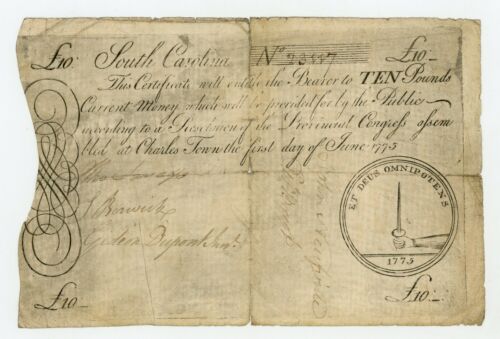 £10: South Carolina Nº £10_
This Certificate will entitle the Bearer to TEN Pounds
Current Money which will be provided for by the Public
according to a Resolution of the Provincial Congress assem
bled at Charles Town the first day of June 1775
ET DEUS OMNIPOTENS
1775
Gideon Dupont Junr.
£10_ £10_